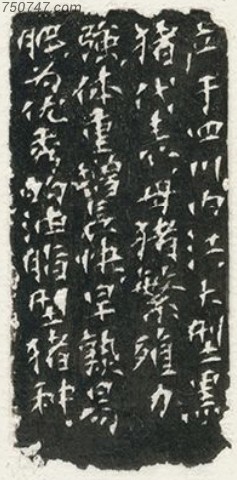 750747.com
产于四川内江大型黑
猪代表母猪繁殖力
强体重增长快早熟易
肥为优秀的油脂型猪种